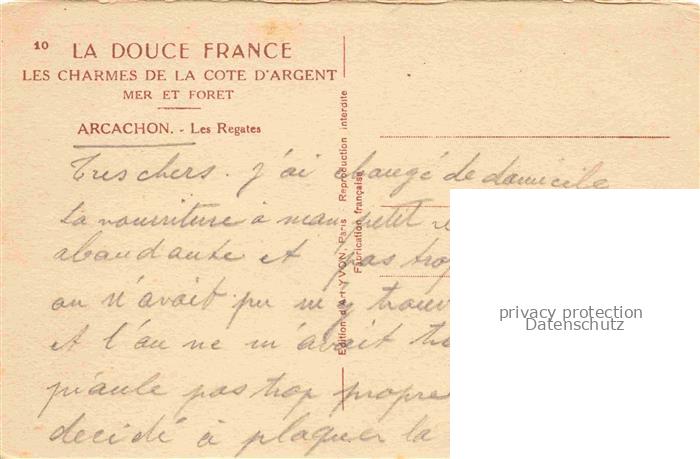 10 LA DOUCE FRANCE
LES CHARMES DE LA COTE D'ARGENT
MER ET FORET
ARCACHON. - Les Regates
Edition d'Art YVON, Paris Reproduction interdite
Fabrication française
Tres chers. J'ai changé de domicile
La nourriture à mon petit
abondante et pas trop
on n'avait pu m'y trouv
et l'on ne m'avait
piaule pas trop propre
decidé à plaquer la
privacy protection
Datenschutz